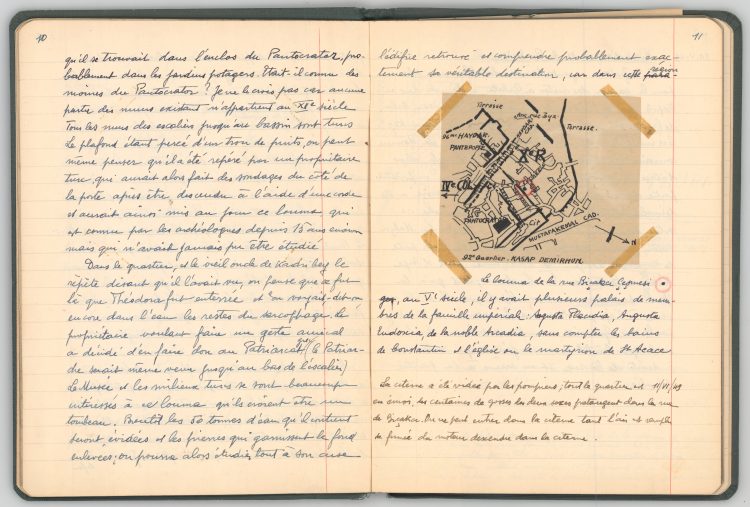 10
qu'il se trouvait dans l'enclos du Pantocrator, pro-
bablement dans les jardins potagers. Etait-il connu des
moines du Pantocrator? Je ne le crois pas car aucune
partie des murs existant n'appartient au XIIe siècle
Tous les murs des escaliers jusqu'au bassin sont turcs
Le plafond étant percé d'un trou de puits, on peut
même penser qu'il a été repéré par un propriétaire
turc, qui aurait alors fait des sondages du côté de
la porte après être descendu à l'aide d'une corde
et aurait ainsi mis au jour ce louma qui
est connu par les archéologues depuis 15 ans environ
mais qui n'avait jamais pu être étudié
Dans le quartier, et le vieil oncle de Kadri bey le
répète disant qu'il l'avait vu, on pense que ce fut
là que Théodora fut enterrée et on voyait-dit-on
encore dans l'eau les restes du sarcophage. Le
propriétaire voulant faire un geste amical
a décidé d'en faire don au Patriarcat grec (le Patriar-
che serait même venu jusqu'au bas de l'escalier)
Le Musée et les milieux turcs se sont beaucoup
intéressés à ce louma qu'ils croient être un
tombeau. Bientôt les 50 tonnes d'eau qu'il contient
seront évidées et les pierres qui garnissent le fond
enlevées; on pourra alors étudier tout à son aise
11
l'édifice retrouvé et comprendre probablement exac-
tement sa véritable destination, car dans cette région
Terrasse
Terrasse.
HAYDAR
PANTEPOPTE
Xe R.
IVe Col.
PANTOKRATOR
Cit.
MUSTAFAKEMAL CAD.
N
92e Quartier. KASAP DEMIRHUN.
Le louma de la rue Bıçakcı Çeşmesi
au Ve siècle, il y avait plusieurs palais de mem-
bres de la famille impériale: Augusta Placidia, Augusta
Eudoxia, de la noble Arcadia, sans compter les bains
de Constantin et l'église ou le martyrion de St Acace
La citerne a été vidée par les pompiers; tout le quartier est 11/VI/49
en émoi, des centaines de gosses des deux sexes pataugent dans la rue
de Bıçakcı. On ne peut entrer dans la citerne tant l'air est rempli
de fumée du moteur descendu dans la citerne.